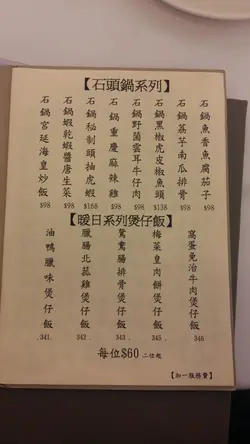 【石頭鍋系列】
石鍋魚香魚腐茄子
$98
石鍋荔芋南瓜排骨
$98
石鍋黑椒虎皮椒魚頭
$138
石鍋野菌雲耳牛仔肉
$98
石鍋重慶麻辣雞
$98
石鍋秘制頭抽虎蝦
$168
石鍋蝦乾蝦醬唐生菜
$98
石鍋宮廷海皇炒飯
$98
【暖日系列煲仔飯】
窩蛋免治牛肉煲仔飯
346
梅菜肉餅煲仔飯
.345.
鴛鴦腸排骨煲仔飯
.343.
臘腸北菇雞煲仔飯
342.
油鴨臘味煲仔飯
.341.
每位$60 二位起
【加一服務費】